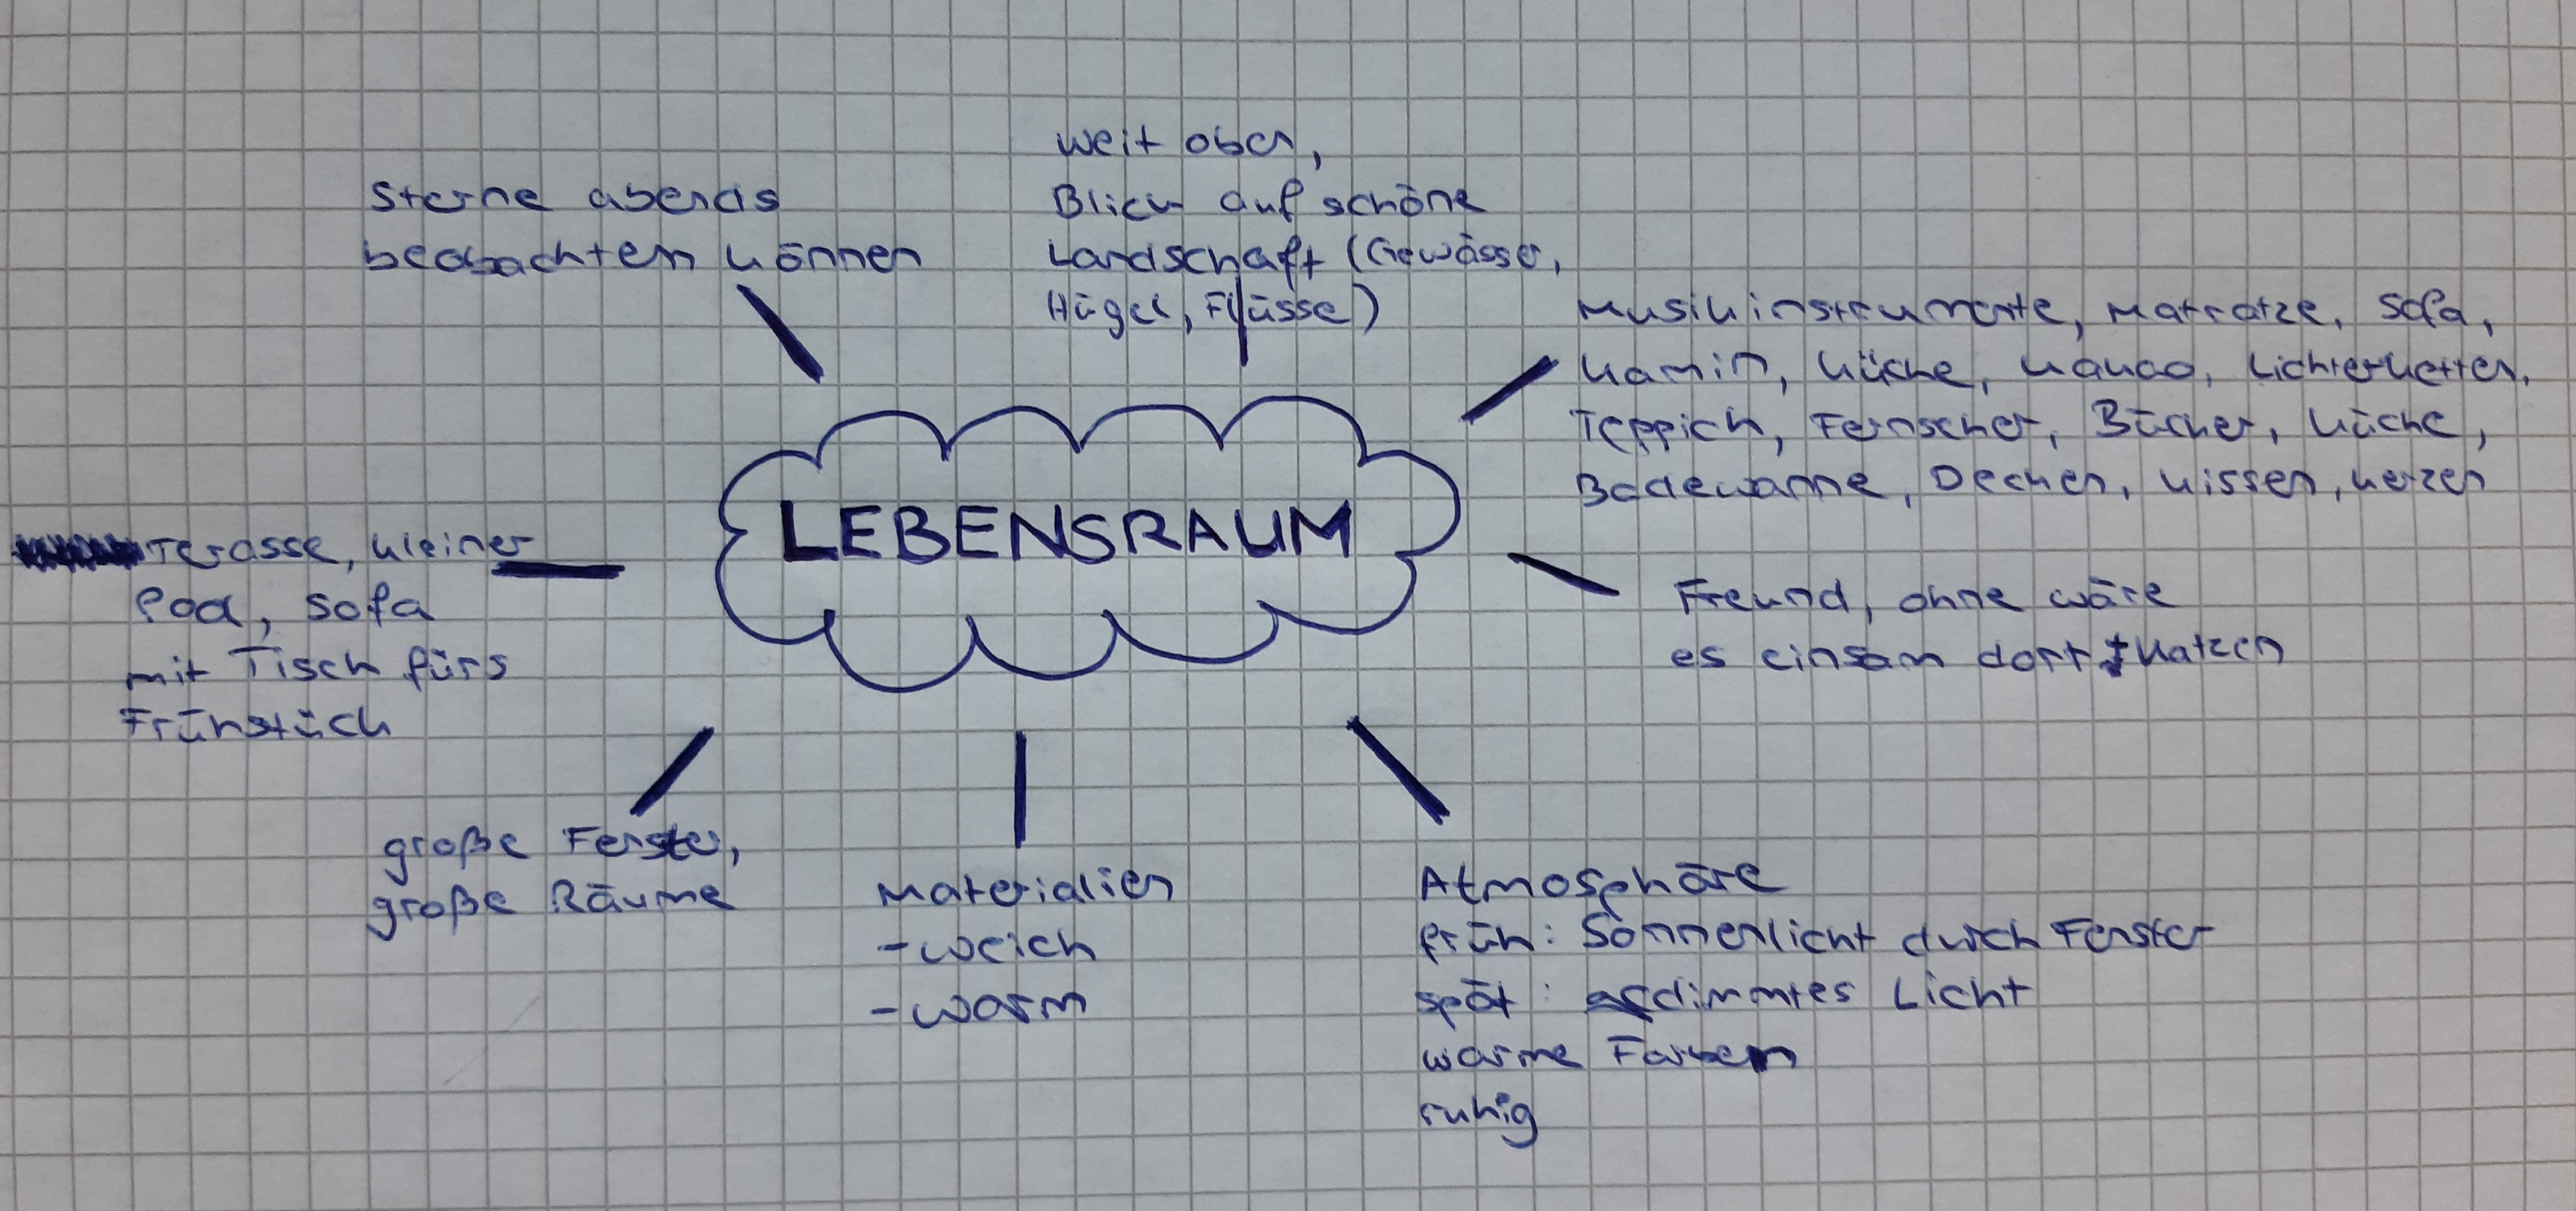 weit oben,
Blick auf schöne
Landschaft (Gewässer,
Hügel, Flüsse)
Sterne abends
beobachten können
Musikinstrumente, Matratze, Sofa,
Kamin, Küche, Kakao, Lichterketten,
Teppich, Fernseher, Bücher, Küche,
Badewanne, Decken, Kissen, Kerzen
LEBENSRAUM
Terasse, kleiner
Pool, Sofa
mit Tisch fürs
Frühstück
Freund, ohne wäre
es einsam dort + Katzen
große Fenster,
große Räume
Materialien
- weich
- warm
Atmosphäre
früh: Sonnenlicht durch Fenster
spät: gedimmtes Licht
warme Farben
ruhig